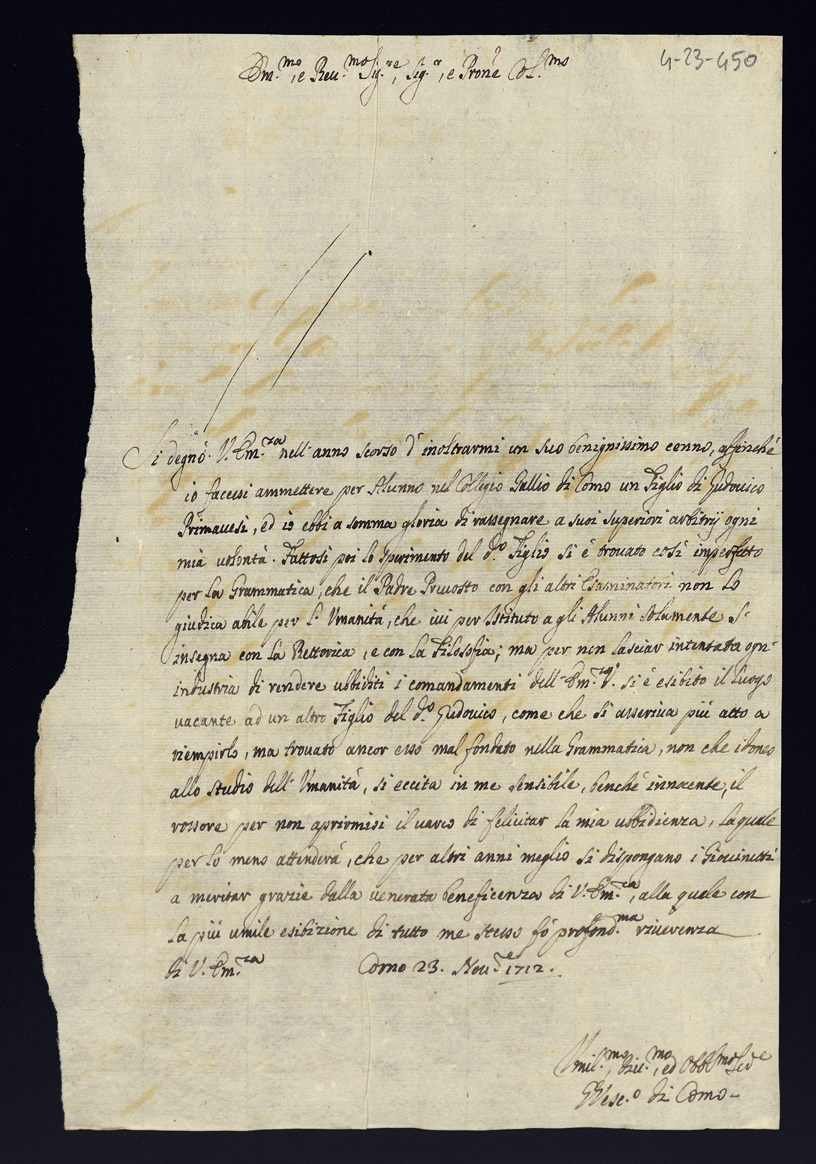 4-23-450
Em.mo, e Reu.mo Sig.re, Sig.r, e Prone Col.mo
Si degnò V. Em.za nell'anno scorso d'inoltrarmi un suo benignissimo cenno, affinché
io facessi ammettere per Alunno nel Collegio Gallio di Como un Figlio di Ludouico
Primauesi, ed io ebbi a somma gloria di rassegnare a suoi superiori arbitrij ogni
mia uolontà. Fattosi poi lo sperimento del d.o Figlio si è trovato così imperfetto
per la Grammatica, che il Padre Preuosto con gli altri Esaminatori non lo
giudica abile per l'Umanità, che iui per Istituto agli Alunni solamente s'
insegna con la Rettorica, e con la Filosofia; ma per non lasciar intentata ogn'
industria di rendere ubbiditi i comandamenti dell'Em.a V. si è esibito il luogo
uacante ad un altro Figlio del d.o Ludouico, come che si asseriua più atto a
riempirlo, ma trouato ancor esso mal fondato nella Grammatica, non che idoneo
allo studio dell'Umanità, si eccita in me sensibile, benché innocente, il
rossore per non aprirmisi il uarco di felicitar la mia ubbidienza, la quale
per lo meno attenderà, che per altri anni meglio si dispongano i Giouinetti
a meritar grazie dalla uenerata beneficenza di V. Em.za, alla quale con
la più umile esibizione di tutto me stesso fò profond.ma riuerenza
di V. Em.za Como 23. Nou.e 1712.
Umil.mo, Diu.mo, ed Obbl.mo Se.e
Il Vesc.o di Como